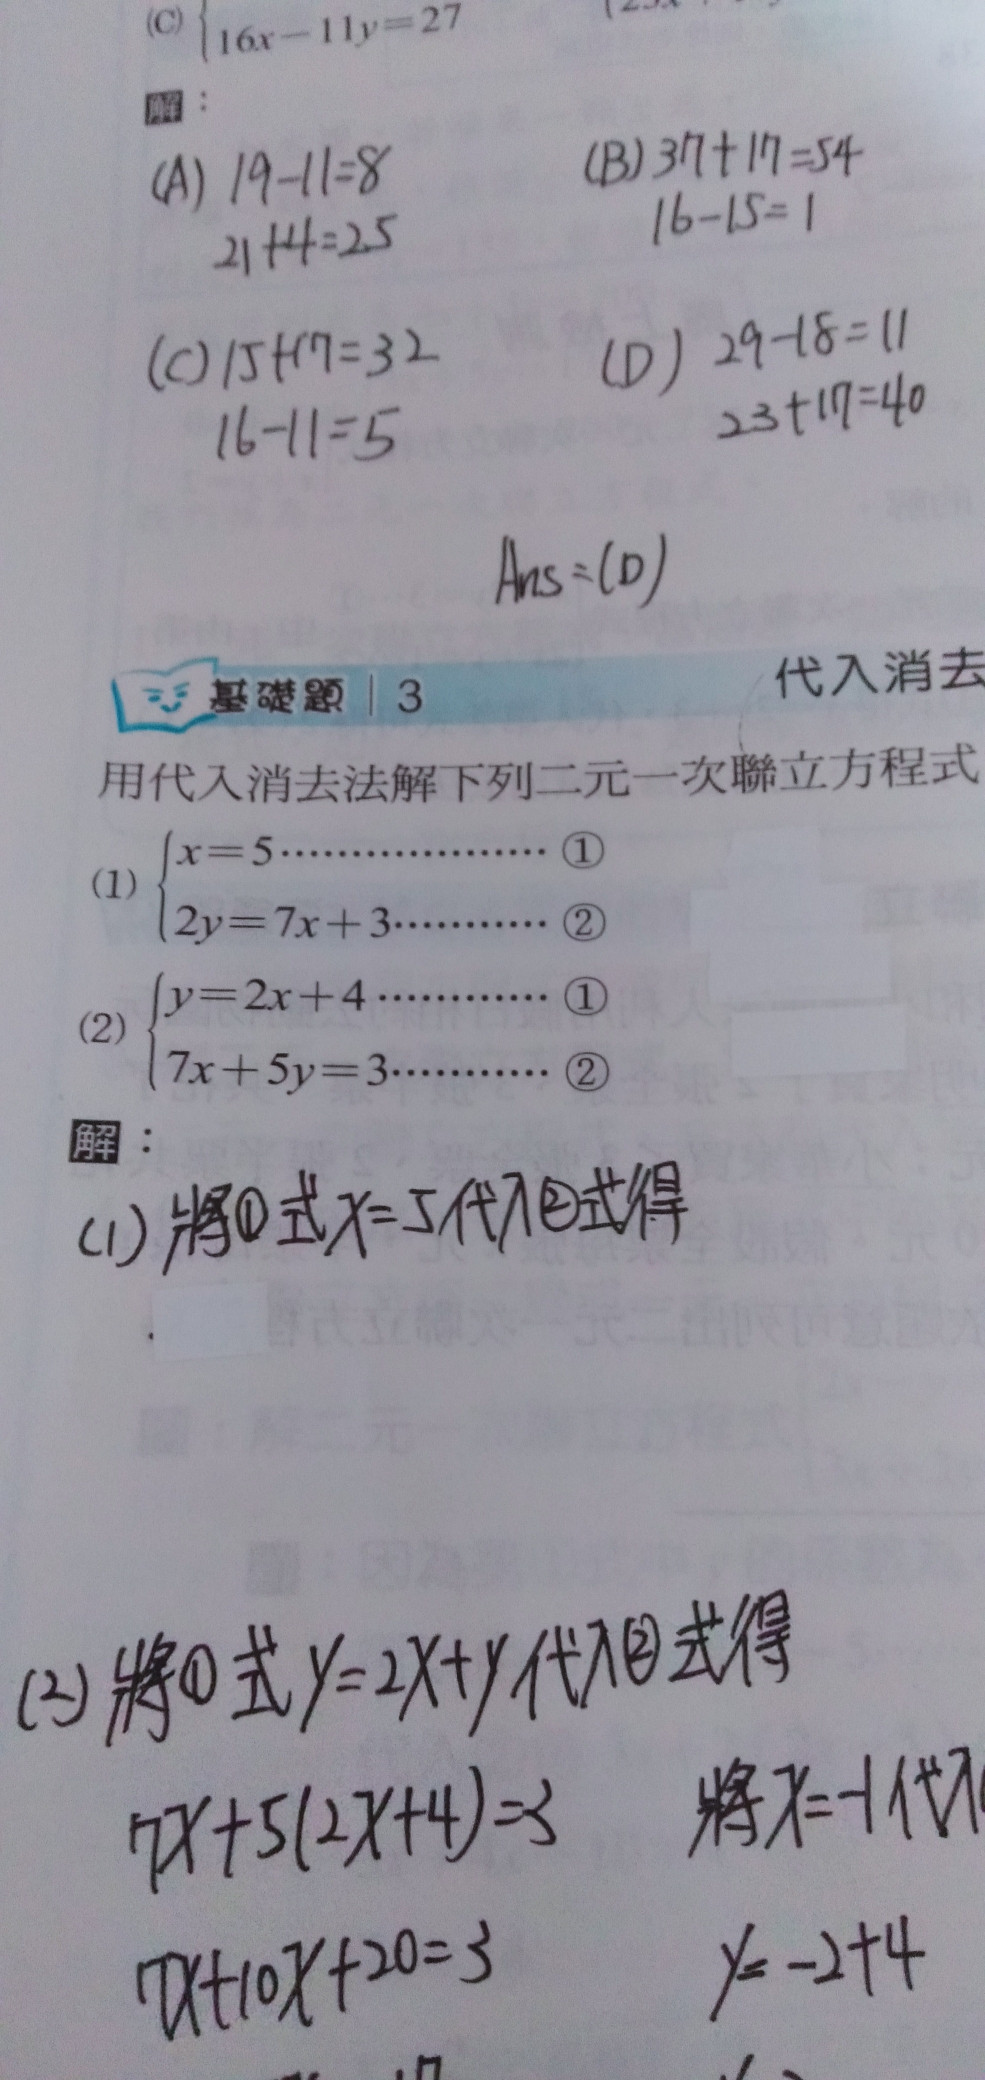 (C) 16x－11y＝27
解：
(A) 19-11=8
21+4=25
(B) 37+17=54
16-15=1
(C) 15+17=32
16-11=5
(D) 29-18=11
23+17=40
Ans=(D)
基礎題｜3
代入消去
用代入消去法解下列二元一次聯立方程式
(1) x＝5………………… ①
2y＝7x＋3………… ②
(2) y＝2x＋4………… ①
7x＋5y＝3………… ②
解：
(1) 將①式x=5代入②式得
(2) 將①式y=2x+y代入②式得
7x+5(2x+4)=3
7x+10x+20=3
將x=-1代入
y=-2+4